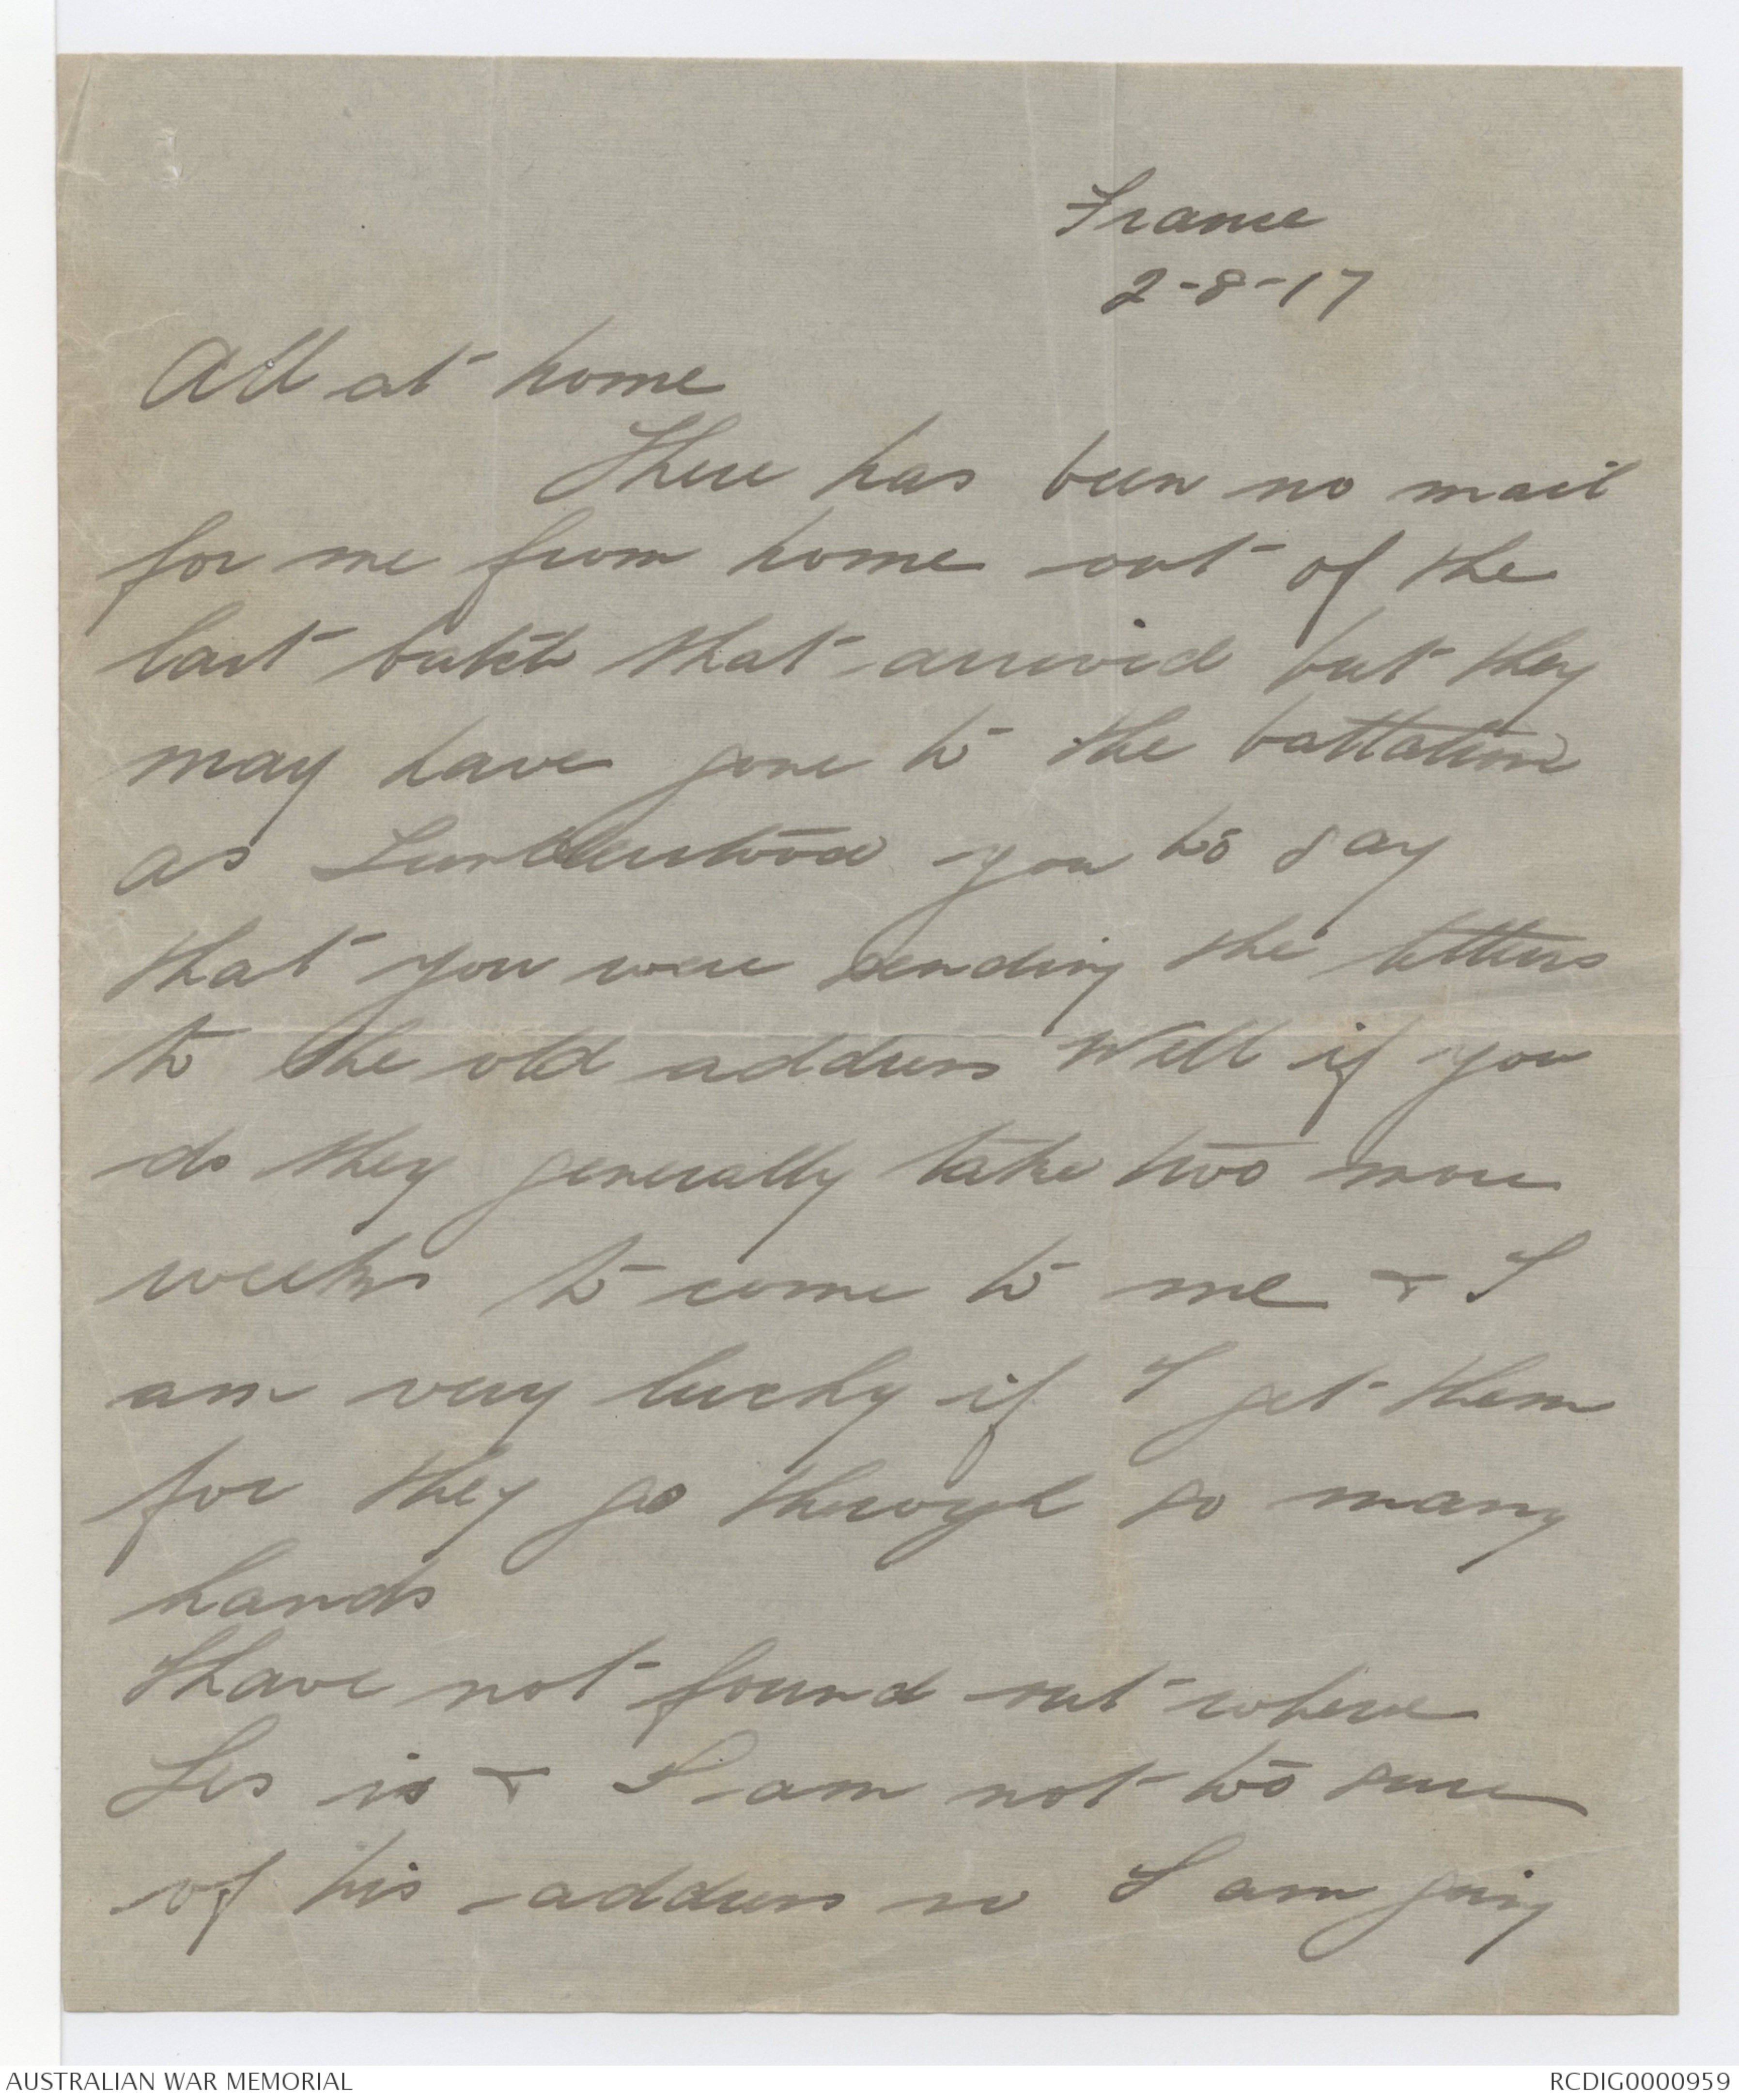 France
2-8-17
All at home
There has been no mail
for me from home out of the
last batch that arrived but they
may have gone to the battalion
as I understood you to say
that you were sending the letters
to the old address Well if you
do they generally take two more
weeks to come to me & I
am very lucky if I get them
for they go through so many
hands
I have not found out where
Les is & I am not too sure
of his address so I am going
AUSTRALIAN WAR MEMORIAL
RCDIG0000959